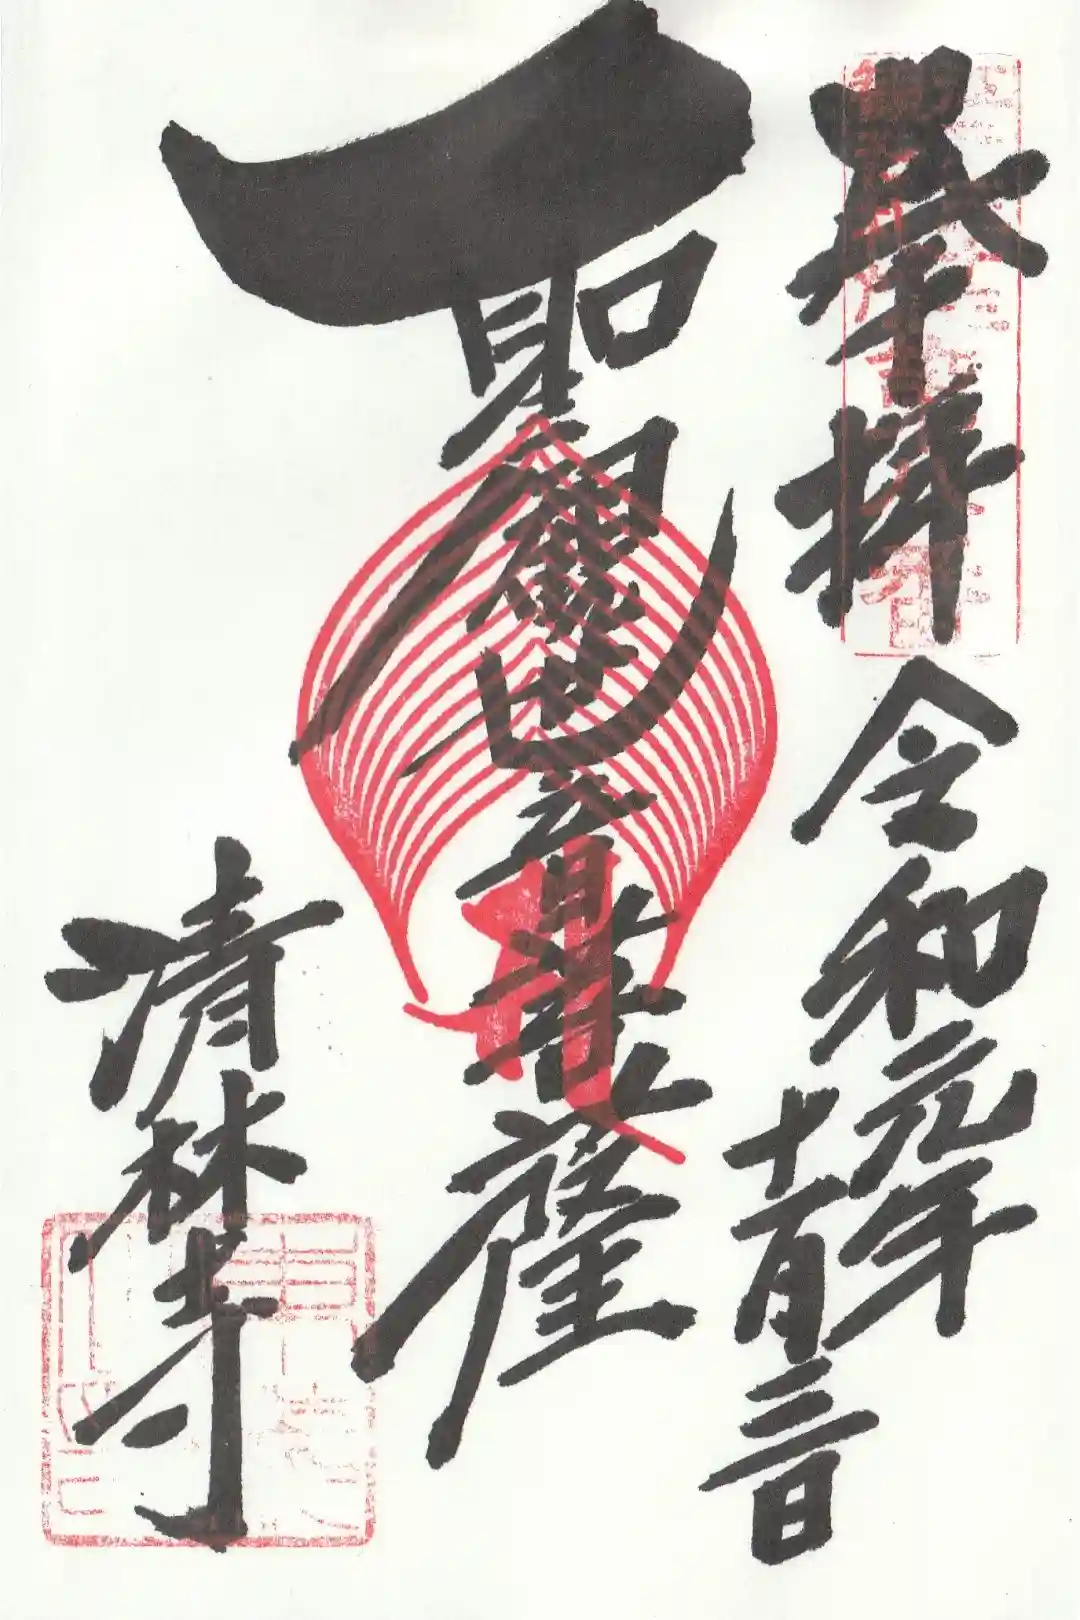 奉拝 令和元年
十一月三日
聖観世音菩薩
清林寺